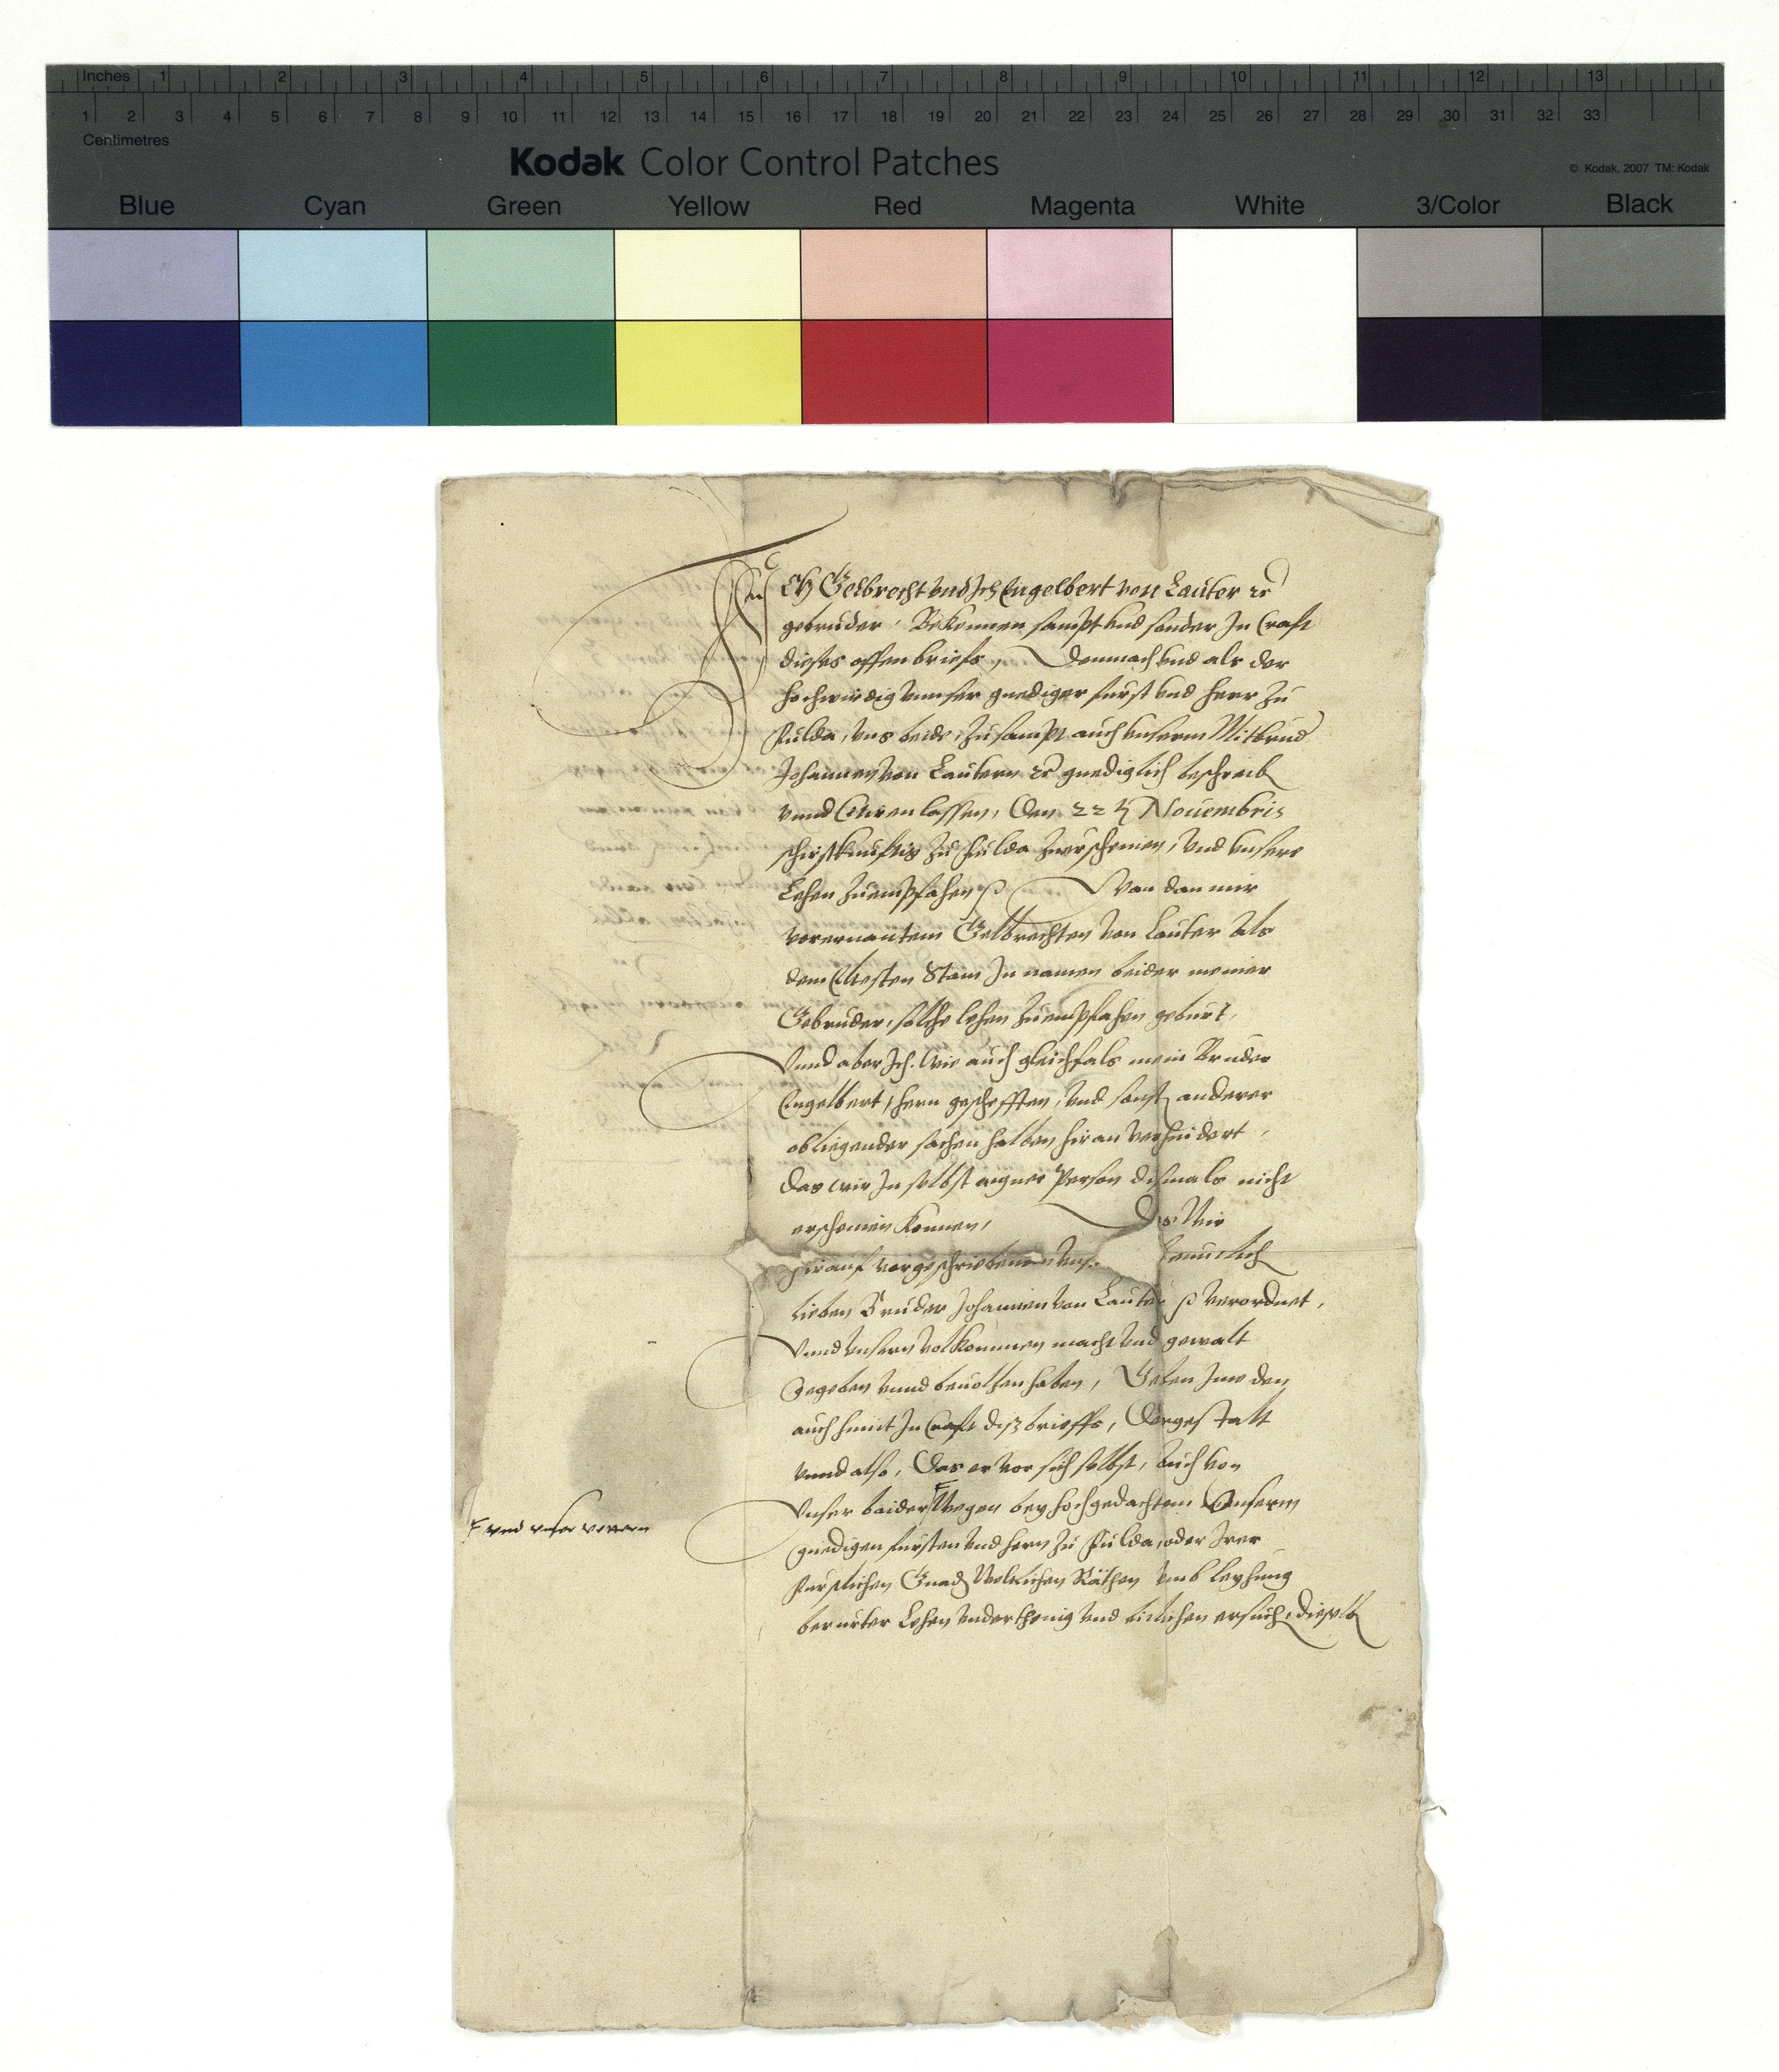 Inches 1 2 3 4 5 6 7 8 9 10 11 12 13
1 2 3 4 5 6 7 8 9 10 11 12 13 14 15 16 17 18 19 20 21 22 23 24 25 26 27 28 29 30 31 32 33
Centimetres
Kodak Color Control Patches
© Kodak, 2007 TM: Kodak
Blue Cyan Green Yellow Red Magenta White 3/Color Black
Ich Gelbrecht vnd Ich Engelbert von Lauter
gebruder, Bekennen sampt vnd sonder In Crafft
dieses offen briefs, Demnach vnd als der
hochwirdig vnnser gnediger furst vnd herr zu
Fulda, vns beide, zu sampt auch vnserm Mitbrud
Johannen von Lautern gnediglich beschreib
vnnd lassen, Den 22 Nouembris
schirstkunftig zu Fulda zuerscheinen, vnd vnsere
Lehen zuempfahen Wan dan mir
vorernantem Gelbrechten von Lauter als
dem Eltesten Stam In namen beider meiner
Gebruder, solche lehen zuempfahen geburt,
Vnnd aber Ich. wie auch gleichfals mein Bruder
Engelbert, hern geschefften, vnd sonst anderer
obliegender sachen halben hiran verhindert,
Das wir In selbst eigner Person dismals nicht
erscheinen konnen, Das Wir
hirauf vorgeschriebenen vns
lieben Bruder Johannen von Lauter verordnet,
Vnnd vnsern volkommen macht vnd gewalt
gegeben vnnd beuolhen haben, Geben Ime den
auch hmit In Crafft diß brieffs, Dergestalt
vnnd also, Das er vor sich selbst, Auch von
Vnser beider Wegen bey hochgedachtem Vnserm
gnedigen fursten vnd hern zu Fulda, oder Irer
Furstlichen Gnad Weltlichen Räthen vmb leyhung
berurter Lehen vnderthenig vnd ersuch, dieselb
vnd vnser vettern